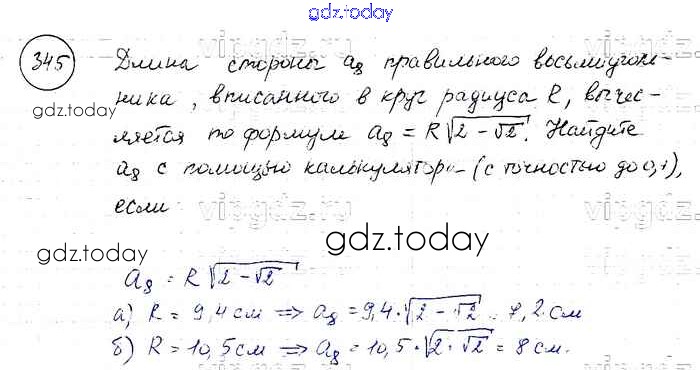 gdz.today
345 Длина стороны a₈ правильного восьмиуголь-
ника, вписанного в круг радиуса R, вычес-
ляется по формуле a₈ = R√(2 - √2). Найдите
a₈ с помощью калькулятора (с точностью до 0,1),
если
vipgdz.ru
gdz.today
gdz.today
a₈ = R√(2 - √2)
а) R = 9,4 см ⇒ a₈ = 9,4·√(2 - √2) = 7,2 см
б) R = 10,5 см ⇒ a₈ = 10,5·√(2·√2) = 8 см.